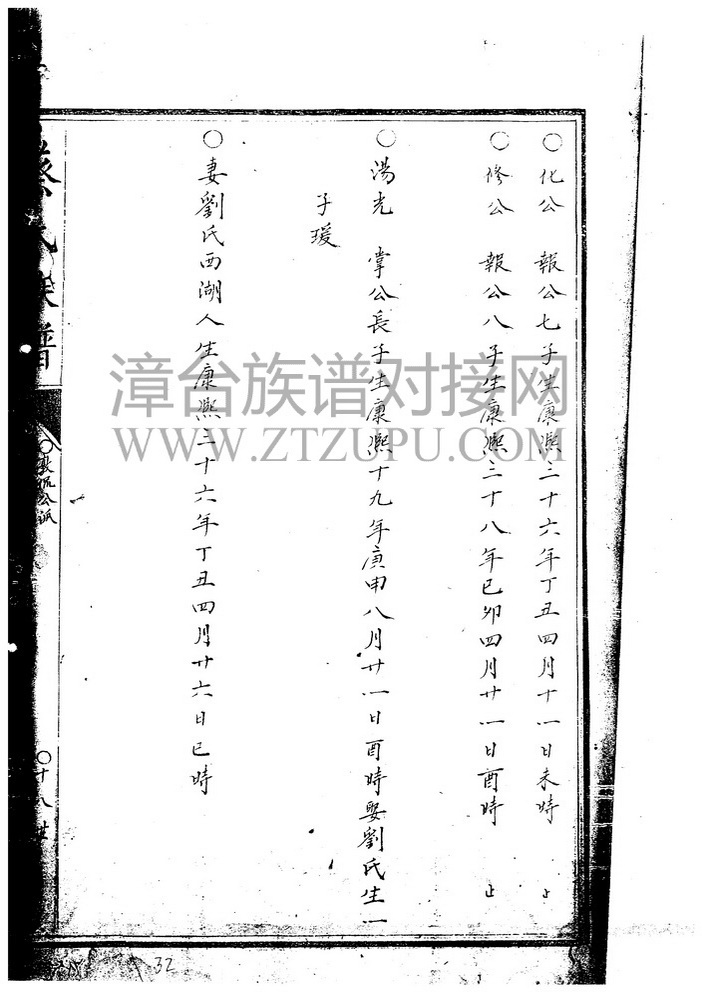 〇化公　報公七子生康熙三十六年丁丑四月十一日未時　止
〇修公　報公八子生康熙三十八年己卯四月廿一日酉時　止
〇湯光　掌公長子生康熙十九年庚申八月廿一日酉時娶劉氏生一
子瑗
〇妻劉氏西湖人生康熙三十六年丁丑四月廿六日巳時
蔡氏族譜
公派
〇十八世
32
漳台族谱对接网
WWW.ZTZUPU.COM